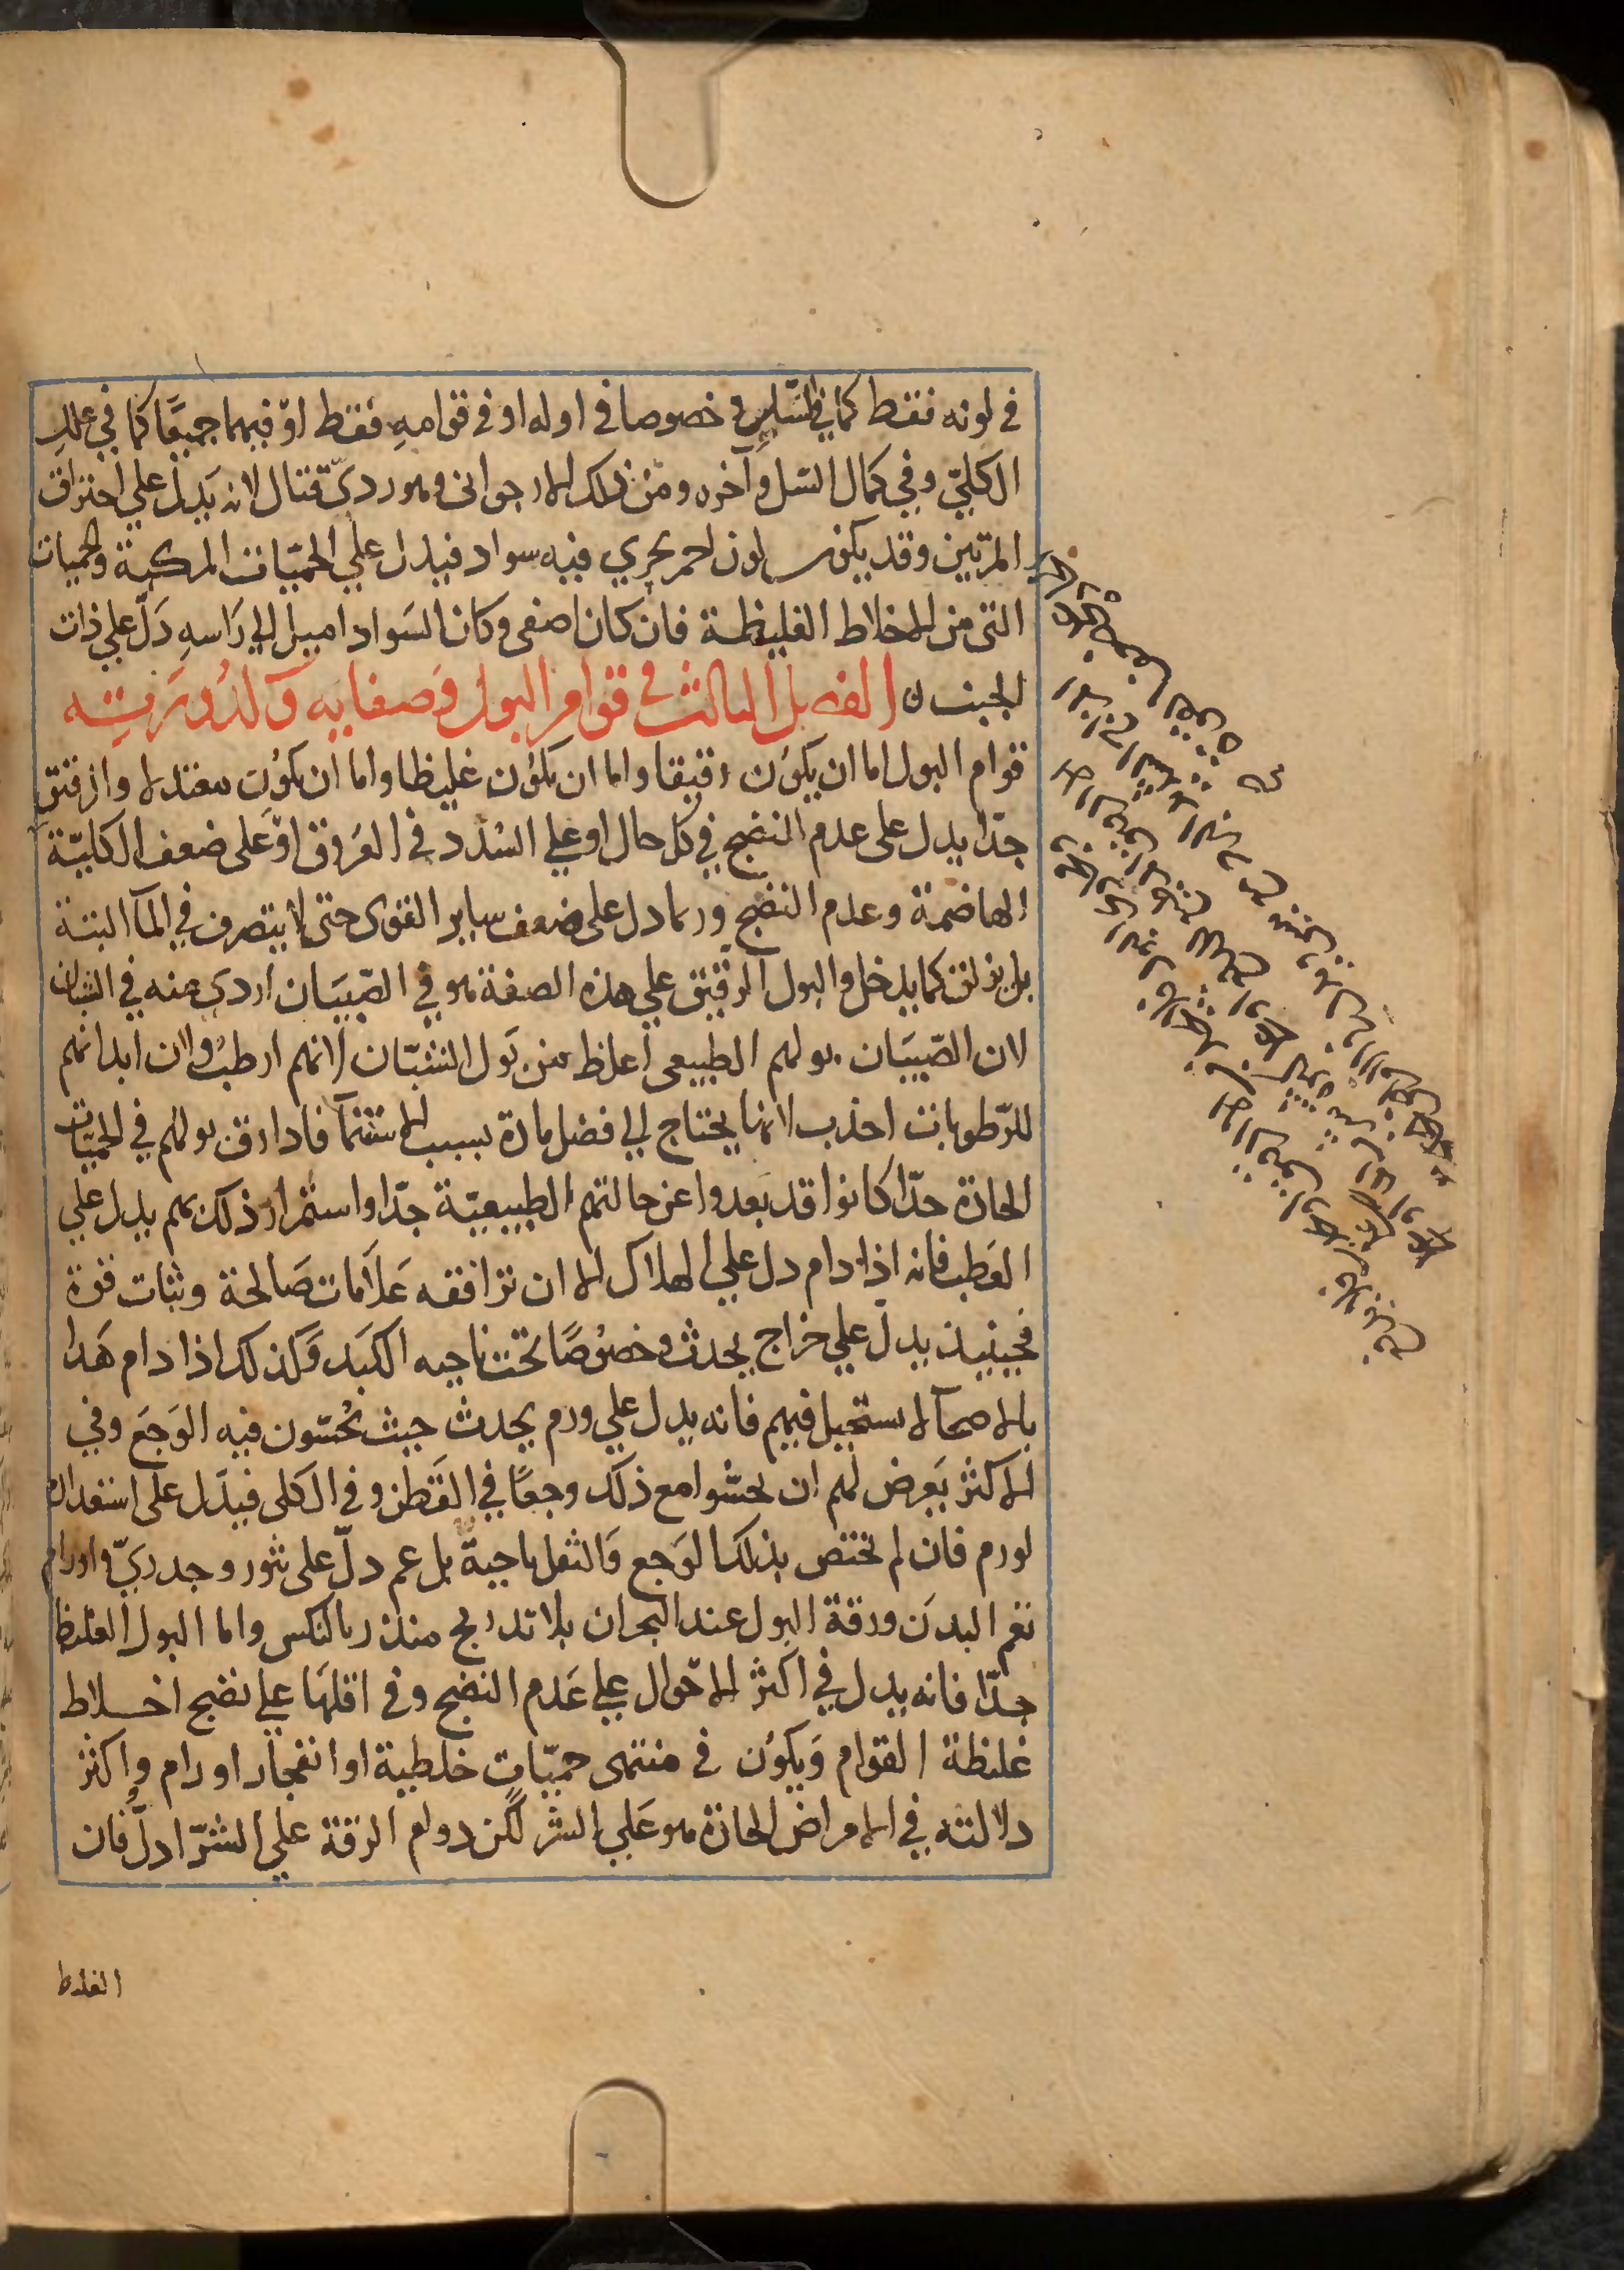 في لونه فقط كما في السل وخصوصا في اوله او في قوامه فقط او فيهما جميعا كما في علل
الكلي وفي كمال السل وآخره ومن ذلك الارجواني وهو ردي قتال لانه يدل علي احتراق
المرتين وقد يكون لون احمر يجري فيه سواد فيدل علي الحميات المركبة والحميات
التي من الاخلاط الغليظة فان كان اصفي وكان السواد اميل الي راسه دل علي ذات
الجنب ن الفصل الثالث في قوام البول وصفايه وكدورته
قوام البول اما ان يكون رقيقا واما ان يكون غليظا واما ان يكون معتدلا وان رقيق
جدا يدل على عدم النضج في كل حال او علي السدد في العروق او على ضعف الكلية
الهاضمة وعدم النضج وربما دل على ضعف ساير القوى حتى لا يتصرف في المآ البتة
بل يزلق كما يدخل والبول الرقيق علي هذه الصفة هو في الصبيان اردى منه في الشبان
لان الصبيان بولهم الطبيعي اغلظ من بول الشبان لانهم ارطب ولان ابدانهم
للرطوبات اجذب لانها يحتاج الي فضل مادة بسبب الاستنمآ فاذا رق بولهم في الحميات
الحادة جدا كانوا قد بعدوا عن حالتهم الطبيعية جدا واستمرار ذلك بهم يدل علي
العطب فانه اذا دام دل علي الهلاك الا ان توافقه علامات صالحة وثبات قوة
فحينيذ يدل علي خراج يحدث وخصوصا تحت ناحيه الكبد وكذلك اذا دام هذا
بالاصحآ لا يستحيل فيهم فانه يدل علي ورم يحدث حيث يحسون فيه الوجع وفي
الاكثر يعرض لهم ان يحسوا مع ذلك وجعا في القطن وفي الكلى فيدل على استعداد
لورم فان لم يختص بذلك الوجع والثقل ناحية بل عم دل على بثور وجدري واورام
تعم البدن ورقة البول عند البحران بلا تدريج منذر بالنكس واما البول الغليظ
جدا فانه يدل في اكثر الاحوال علي عدم النضج وفي اقلها علي نضج اخلاط
غليظة القوام ويكون في منتهى حميات خلطية او انفجار اورام واكثر
دلالته في الامراض الحادة هو علي الشر لكن دوام الرقة علي الشر ادل فان
الغليظ